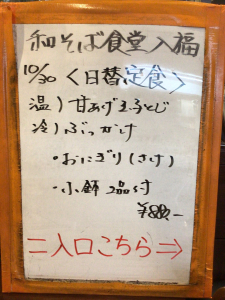 和そば食堂入福
10/30 〈日替定食〉
温)甘あげ玉ふとじ
冷)ぶっかけ
・おにぎり(さけ)
・小鉢 2品付
¥880-
=入口こちら⇒